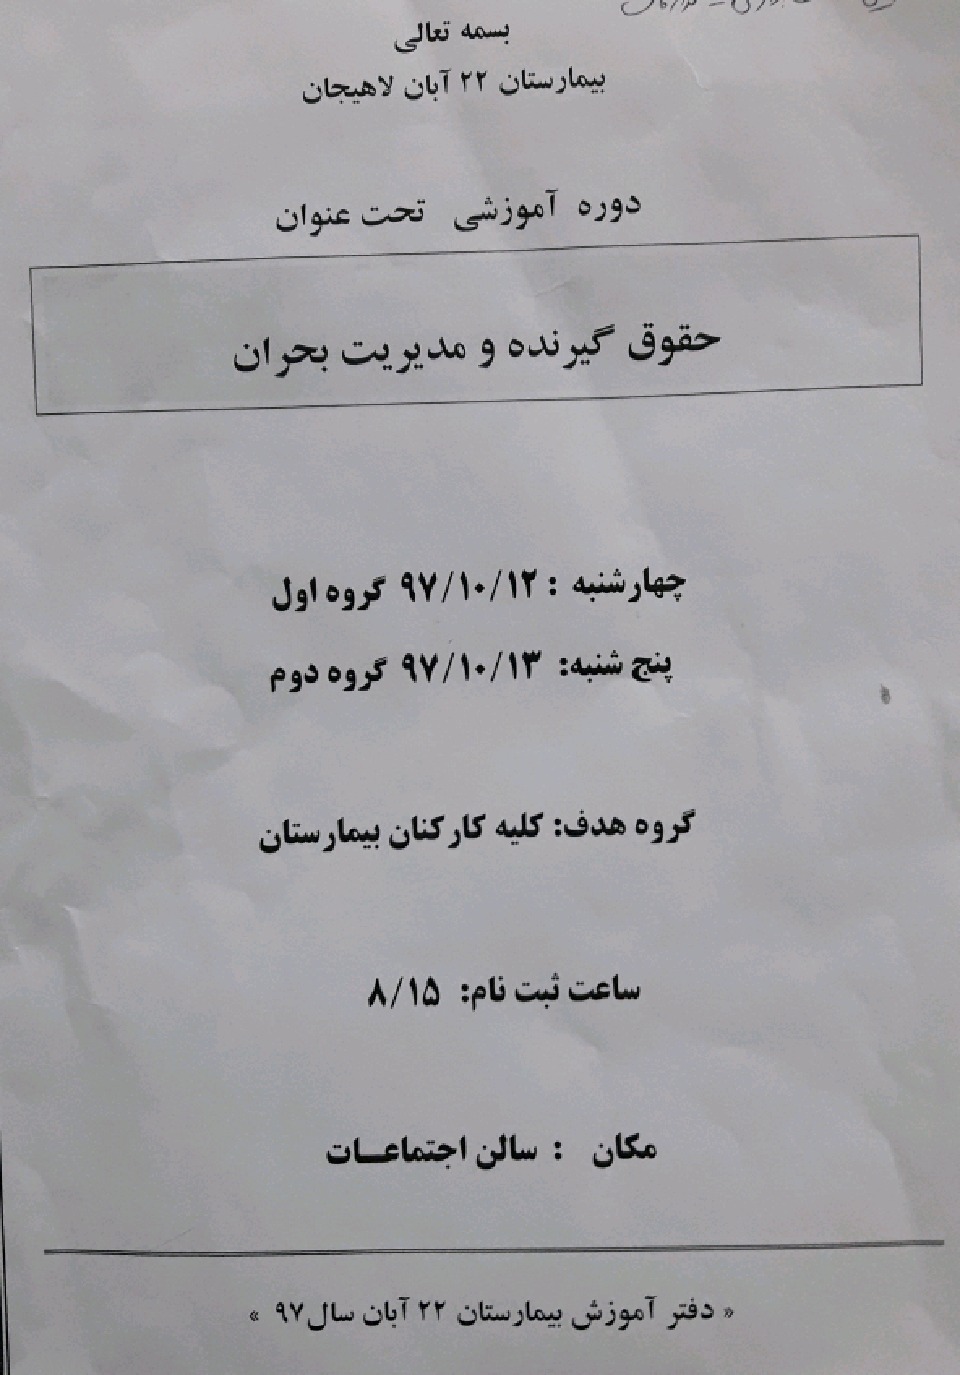 بسمه تعالی
بیمارستان ۲۲ آبان لاهیجان
دوره آموزشی تحت عنوان
حقوق گیرنده و مدیریت بحران
چهارشنبه : ۹۷/۱۰/۱۲ گروه اول
پنج شنبه: ۹۷/۱۰/۱۳ گروه دوم
گروه هدف: کلیه کارکنان بیمارستان
ساعت ثبت نام: ۸/۱۵
مکان : سالن اجتماعـــات
« دفتر آموزش بیمارستان ۲۲ آبان سال۹۷ »